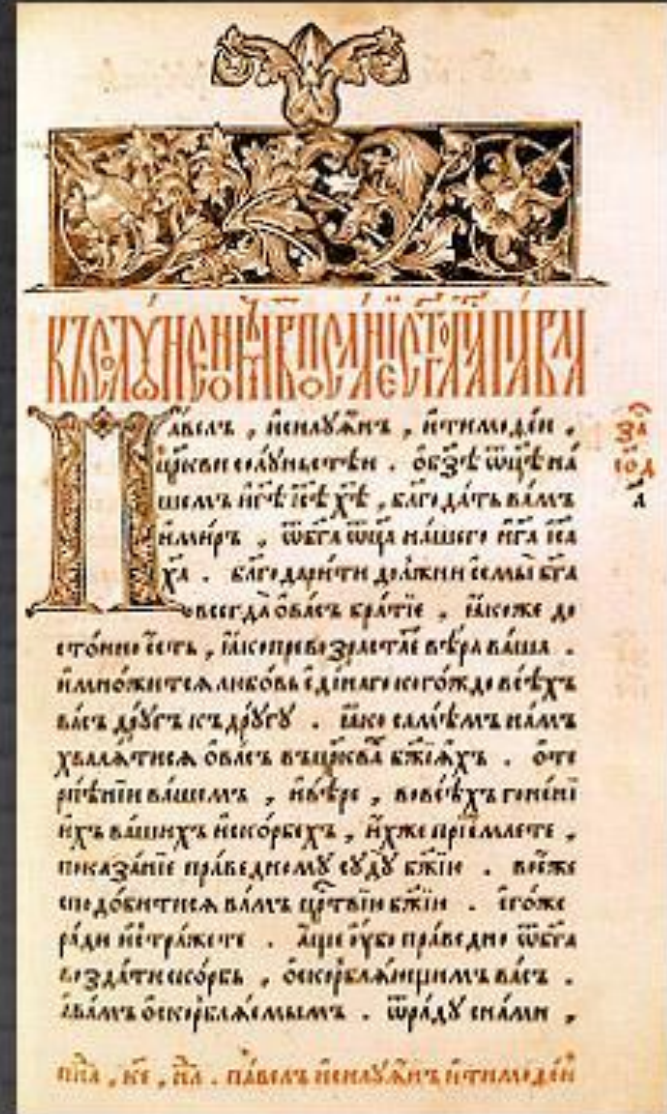 Къ солꙋнѧномъ в҃ посланїе ст҃го ап҃ла павла
Павелъ , и҆силꙋа́нъ , и҆тимоѳе́и ,
цр҃кви солꙋ́ньстѣи . ѡ҆бз҃ѣ ѿц҃ѣ на́
шемъ и҆г҃ѣ і҆с҃ѣ х҃ѣ , бл҃года́ть ва́мъ
и҆ми́ръ , ѿбг҃а ѿц҃а на́шего и҆г҃а і҆с҃а
х҃а . бл҃годари́ти до́лжни есмы̀ бг҃а
всегда̀ ѡ҆ва́съ бра́тїе , ꙗ҆́коже до
сто́йно є҆́сть , ꙗ҆́ко превозраста́є вѣ́ра ва́ша .
и҆мно́житсѧ любо́вь є҆ди́наго кого́ждо всѣ́хъ
ва́съ дрꙋ́гъ къ дрꙋ́гꙋ . ꙗ҆́ко самѣ́мъ на́мъ
хвали́тисѧ ѡ҆ва́съ въ цр҃ква бж҃їѧхъ . ѡ҆те
рпѣ́нїи ва́шемъ , и҆вѣ́ре , вовсѣ́хъ гоне́нї
и҆хъ ва́шихъ и҆ско́рбехъ , и҆́хже прїе́млете ,
показа́нїе пра́ведномꙋ сꙋдꙋ̀ бж҃їю . во е҆́же
сподо́битисѧ ва́мъ цр҃твїю бж҃їю . є҆го́же
ра́ди и҆стра́жете . а҆́ще ᲂу҆́бо пра́ведно ѿбг҃а
возда́ти ско́рбь , ѡ҆скорблѧ́ющимъ ва́съ .
а҆ва́мъ ѡ҆скорблѧ́емымъ . ѿра́дꙋ сна́ми ,
за
со҃д
а
па́велъ и҆силꙋа́нъ и҆тимоѳе́и